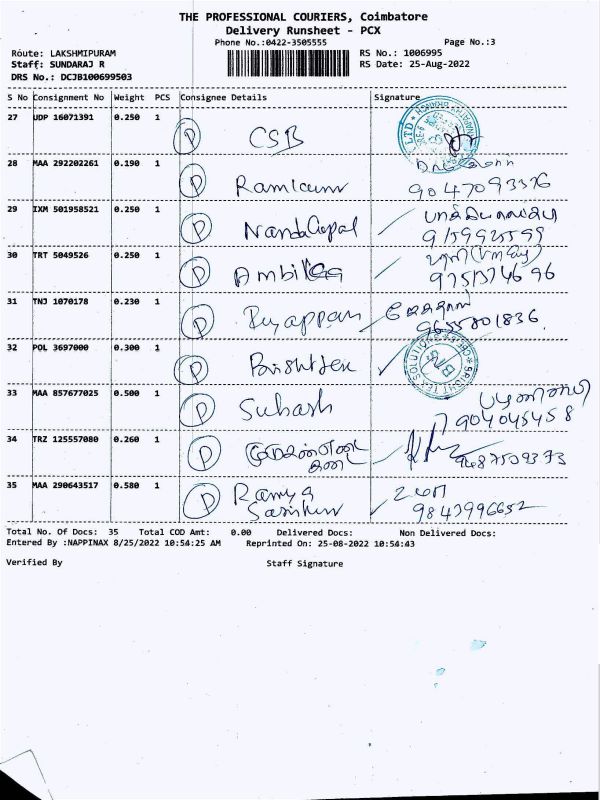 THE PROFESSIONAL COURIERS, Coimbatore
Delivery Runsheet - PCX
Phone No.:0422-3505555 Page No.:3
Route: LAKSHMIPURAM RS No.: 1006995
Staff: SUNDARAJ R RS Date: 25-Aug-2022
DRS No.: DCJB100699503
S No Consignment No Weight PCS Consignee Details Signature
27 UDP 16071391 0.250 1 P CSB
28 MAA 292202261 0.190 1 P
9047093376
29 IXM 501958521 0.250 1 P NandaGopal
9159925599
30 TRT 5049526 0.250 1 P
9751574696
31 TNJ 1070178 0.230 1 P
9655801836
32 POL 3697000 0.300 1 P
33 MAA 857677025 0.500 1 P Subash
904045458
34 TRZ 125557080 0.260 1 P
9487509373
35 MAA 290643517 0.580 1 P Ramya
9843996652
Total No. Of Docs: 35 Total COD Amt: 0.00 Delivered Docs: Non Delivered Docs:
Entered By :NAPPINAX 8/25/2022 10:54:25 AM Reprinted On: 25-08-2022 10:54:43
Verified By Staff Signature